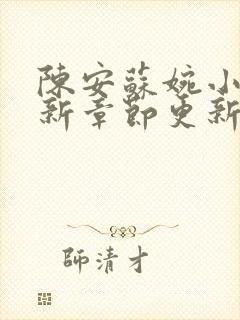 陳安蘇婉小
新章節更新
師清才